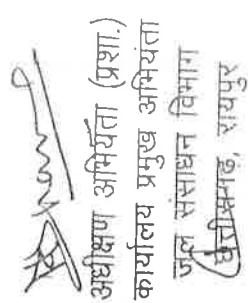 अधीक्षण अभियंता (प्रशा.)
कार्यालय प्रमुख अभियंता
जल संसाधन विभाग
छत्तीसगढ़, रायपुर